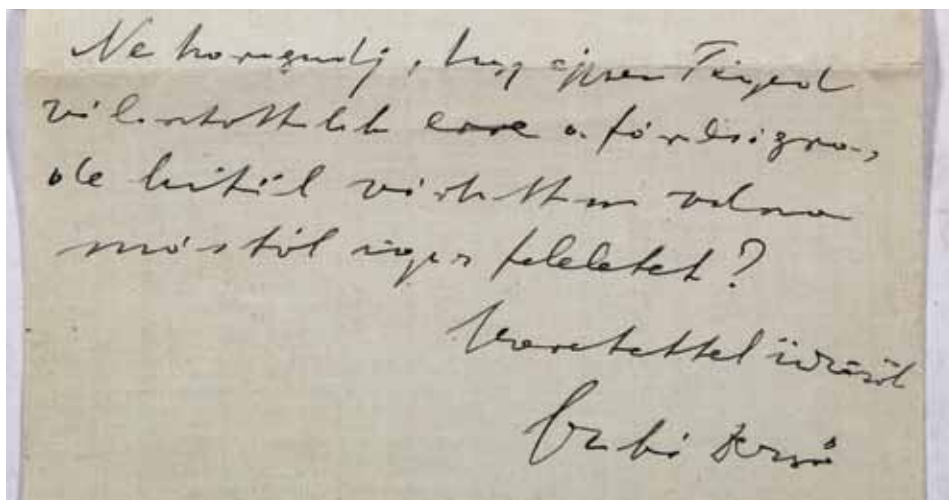 Ne haragudj, hogy éppen Téged
választottalak erre a fáradságra,
de kitől vártam volna
mástól igaz feleletet?
Szeretettel üdvözöl
Szabó Dezső